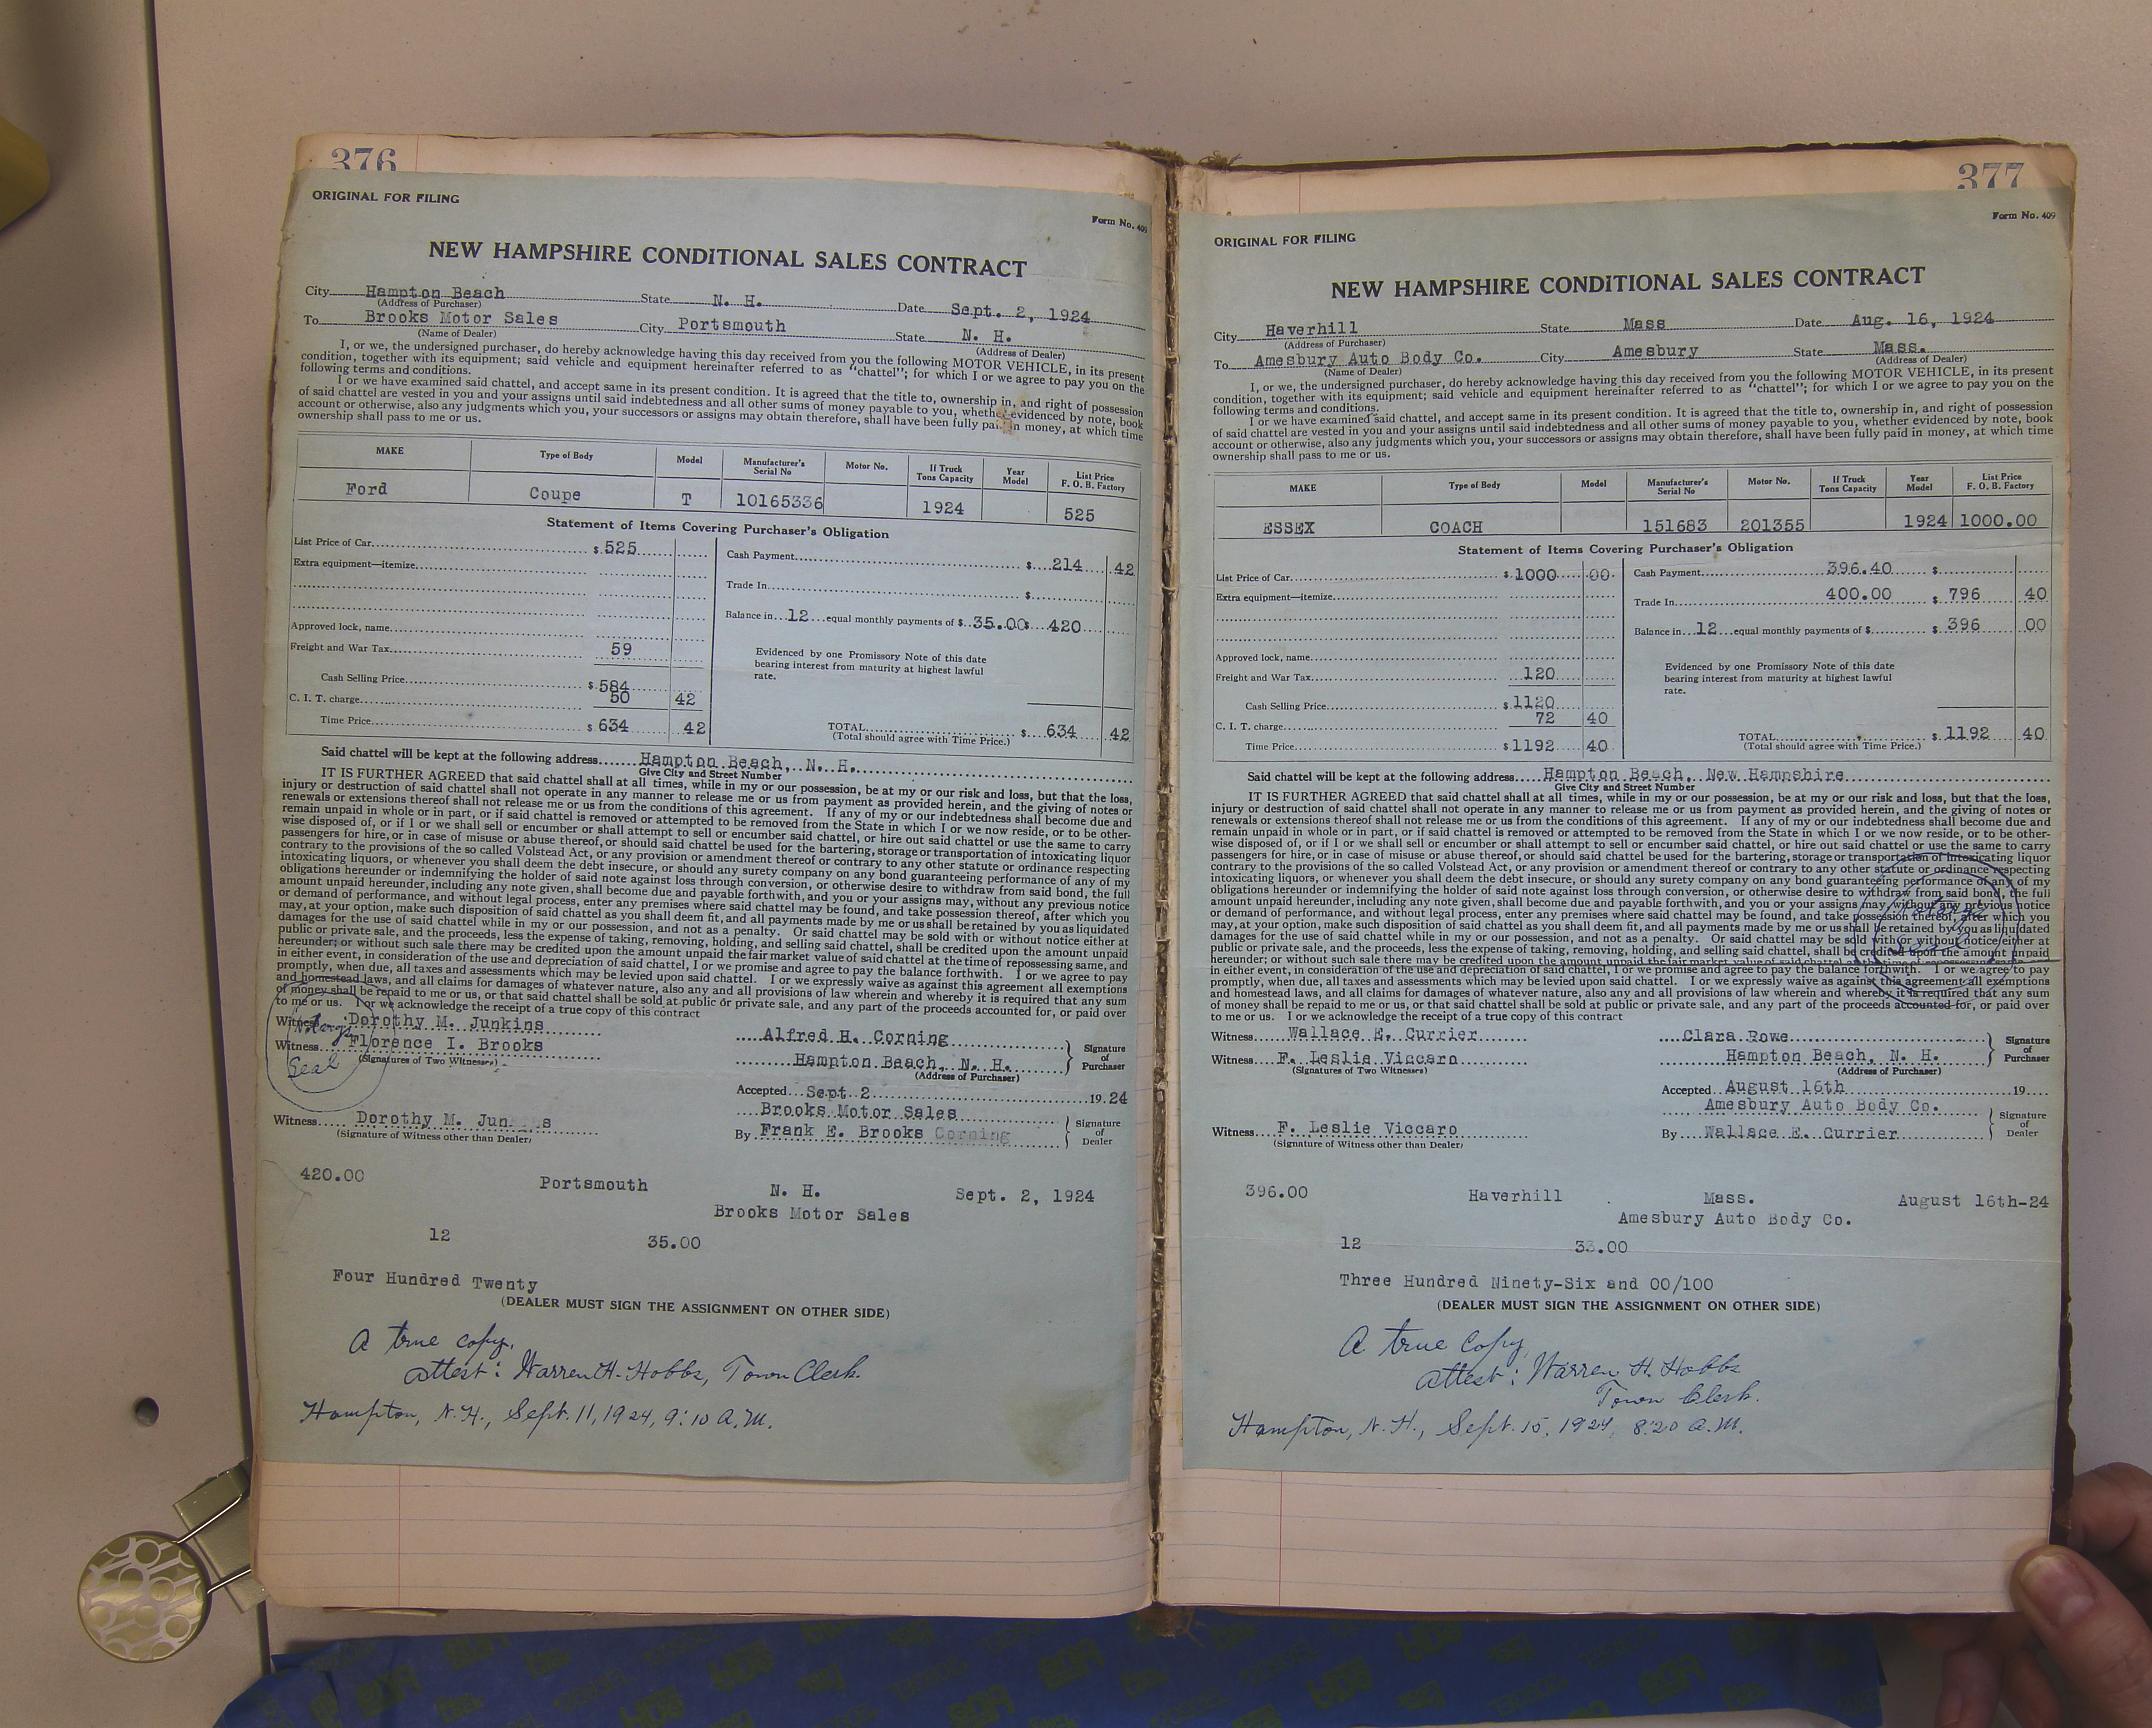 376
ORIGINAL FOR FILING
Form No. 409
NEW HAMPSHIRE CONDITIONAL SALES CONTRACT
City Hampton Beach State N. H. Date Sept. 2, 1924
(Address of Purchaser)
To Brooks Motor Sales City Portsmouth State N. H.
(Name of Dealer) (Address of Dealer)
I, or we, the undersigned purchaser, do hereby acknowledge having this day received from you the following MOTOR VEHICLE, in its present
condition, together with its equipment; said vehicle and equipment hereinafter referred to as "chattel"; for which I or we agree to pay you on the
following terms and conditions.
I or we have examined said chattel, and accept same in its present condition. It is agreed that the title to, ownership in, and right of possession
of said chattel are vested in you and your assigns until said indebtedness and all other sums of money payable to you, whether evidenced by note, book
account or otherwise, also any judgments which you, your successors or assigns may obtain therefore, shall have been fully paid in money, at which time
ownership shall pass to me or us.
MAKE Type of Body Model Manufacturer's Serial No Motor No. If Truck Tons Capacity Year Model List Price F. O. B. Factory
Ford Coupe T 10165336 1924 525
Statement of Items Covering Purchaser's Obligation
List Price of Car $ 525 Cash Payment $ 214 42
Extra equipment—itemize
Trade In $
Balance in 12 equal monthly payments of $ 35.00 $ 420
Approved lock, name
Freight and War Tax 59
Evidenced by one Promissory Note of this date
bearing interest from maturity at highest lawful
rate.
Cash Selling Price $ 584
C. I. T. charge 50 42
Time Price $ 634 42 TOTAL $ 634 42
(Total should agree with Time Price.)
Said chattel will be kept at the following address Hampton Beach, N. H.
Give City and Street Number
IT IS FURTHER AGREED that said chattel shall at all times, while in my or our possession, be at my or our risk and loss, but that the loss,
injury or destruction of said chattel shall not operate in any manner to release me or us from payment as provided herein, and the giving of notes or
renewals or extensions thereof shall not release me or us from the conditions of this agreement. If any of my or our indebtedness shall become due and
remain unpaid in whole or in part, or if said chattel is removed or attempted to be removed from the State in which I or we now reside, or to be other-
wise disposed of, or if I or we shall sell or encumber or shall attempt to sell or encumber said chattel, or hire out said chattel or use the same to carry
passengers for hire, or in case of misuse or abuse thereof, or should said chattel be used for the bartering, storage or transportation of intoxicating liquor
contrary to the provisions of the so called Volstead Act, or any provision or amendment thereof or contrary to any other statute or ordinance respecting
intoxicating liquors, or whenever you shall deem the debt insecure, or should any surety company on any bond guaranteeing performance of any of my
obligations hereunder or indemnifying the holder of said note against loss through conversion, or otherwise desire to withdraw from said bond, the full
amount unpaid hereunder, including any note given, shall become due and payable forthwith, and you or your assigns may, without any previous notice
or demand of performance, and without legal process, enter any premises where said chattel may be found, and take possession thereof, after which you
may, at your option, make such disposition of said chattel as you shall deem fit, and all payments made by me or us shall be retained by you as liquidated
damages for the use of said chattel while in my or our possession, and not as a penalty. Or said chattel may be sold with or without notice either at
public or private sale, and the proceeds, less the expense of taking, removing, holding, and selling said chattel, shall be credited upon the amount unpaid
hereunder; or without such sale there may be credited upon the amount unpaid the fair market value of said chattel at the time of repossessing same, and
in either event, in consideration of the use and depreciation of said chattel, I or we promise and agree to pay the balance forthwith. I or we agree to pay
promptly, when due, all taxes and assessments which may be levied upon said chattel. I or we expressly waive as against this agreement all exemptions
and homestead laws, and all claims for damages of whatever nature, also any and all provisions of law wherein and whereby it is required that any sum
of money shall be repaid to me or us, or that said chattel shall be sold at public or private sale, and any part of the proceeds accounted for, or paid over
to me or us. I or we acknowledge the receipt of a true copy of this contract
Witness Dorothy M. Junkins Alfred H. Corning
Witness Florence I. Brooks Hampton Beach, N. H. Signature of Purchaser
(Signatures of Two Witnesses) (Address of Purchaser)
Notary
Seal
Accepted Sept 2 19 24
Brooks Motor Sales
Witness Dorothy M. Junkins By Frank E. Brooks Corning Signature of Dealer
(Signature of Witness other than Dealer)
420.00 Portsmouth N. H. Sept. 2, 1924
Brooks Motor Sales
12 35.00
Four Hundred Twenty
(DEALER MUST SIGN THE ASSIGNMENT ON OTHER SIDE)
A true copy.
attest: Warren H. Hobbs, Town Clerk.
Hampton, N.H., Sept. 11, 1924, 9:10 A.M.
377
ORIGINAL FOR FILING
Form No. 409
NEW HAMPSHIRE CONDITIONAL SALES CONTRACT
City Haverhill State Mass Date Aug. 16, 1924
(Address of Purchaser)
To Amesbury Auto Body Co. City Amesbury State Mass.
(Name of Dealer) (Address of Dealer)
I, or we, the undersigned purchaser, do hereby acknowledge having this day received from you the following MOTOR VEHICLE, in its present
condition, together with its equipment; said vehicle and equipment hereinafter referred to as "chattel"; for which I or we agree to pay you on the
following terms and conditions.
I or we have examined said chattel, and accept same in its present condition. It is agreed that the title to, ownership in, and right of possession
of said chattel are vested in you and your assigns until said indebtedness and all other sums of money payable to you, whether evidenced by note, book
account or otherwise, also any judgments which you, your successors or assigns may obtain therefore, shall have been fully paid in money, at which time
ownership shall pass to me or us.
MAKE Type of Body Model Manufacturer's Serial No Motor No. If Truck Tons Capacity Year Model List Price F. O. B. Factory
ESSEX COACH 151683 201355 1924 1000.00
Statement of Items Covering Purchaser's Obligation
List Price of Car $ 1000 00 Cash Payment 396.40 $
Extra equipment—itemize
Trade In 400.00 $ 796 40
Balance in 12 equal monthly payments of $ $ 396 00
Approved lock, name
Freight and War Tax 120
Evidenced by one Promissory Note of this date
bearing interest from maturity at highest lawful
rate.
Cash Selling Price $ 1120
C. I. T. charge 72 40
Time Price $ 1192 40 TOTAL $ 1192 40
(Total should agree with Time Price.)
Said chattel will be kept at the following address Hampton Beach, New Hampshire
Give City and Street Number
IT IS FURTHER AGREED that said chattel shall at all times, while in my or our possession, be at my or our risk and loss, but that the loss,
injury or destruction of said chattel shall not operate in any manner to release me or us from payment as provided herein, and the giving of notes or
renewals or extensions thereof shall not release me or us from the conditions of this agreement. If any of my or our indebtedness shall become due and
remain unpaid in whole or in part, or if said chattel is removed or attempted to be removed from the State in which I or we now reside, or to be other-
wise disposed of, or if I or we shall sell or encumber or shall attempt to sell or encumber said chattel, or hire out said chattel or use the same to carry
passengers for hire, or in case of misuse or abuse thereof, or should said chattel be used for the bartering, storage or transportation of intoxicating liquor
contrary to the provisions of the so called Volstead Act, or any provision or amendment thereof or contrary to any other statute or ordinance respecting
intoxicating liquors, or whenever you shall deem the debt insecure, or should any surety company on any bond guaranteeing performance of any of my
obligations hereunder or indemnifying the holder of said note against loss through conversion, or otherwise desire to withdraw from said bond, the full
amount unpaid hereunder, including any note given, shall become due and payable forthwith, and you or your assigns may, without any previous notice
or demand of performance, and without legal process, enter any premises where said chattel may be found, and take possession thereof, after which you
may, at your option, make such disposition of said chattel as you shall deem fit, and all payments made by me or us shall be retained by you as liquidated
damages for the use of said chattel while in my or our possession, and not as a penalty. Or said chattel may be sold with or without notice either at
public or private sale, and the proceeds, less the expense of taking, removing, holding, and selling said chattel, shall be credited upon the amount unpaid
hereunder; or without such sale there may be credited upon the amount unpaid the fair market value of said chattel at the time of repossessing same
in either event, in consideration of the use and depreciation of said chattel, I or we promise and agree to pay the balance forthwith. I or we agree to pay
promptly, when due, all taxes and assessments which may be levied upon said chattel. I or we expressly waive as against this agreement all exemptions
and homestead laws, and all claims for damages of whatever nature, also any and all provisions of law wherein and whereby it is required that any sum
of money shall be repaid to me or us, or that said chattel shall be sold at public or private sale, and any part of the proceeds accounted for, or paid over
to me or us. I or we acknowledge the receipt of a true copy of this contract
Notary
Seal
Witness Wallace E. Currier Clara Rowe
Witness F. Leslie Viccaro Hampton Beach, N. H. Signature of Purchaser
(Signatures of Two Witnesses) (Address of Purchaser)
Accepted August 16th 19
Amesbury Auto Body Co.
Witness F. Leslie Viccaro By Wallace E. Currier Signature of Dealer
(Signature of Witness other than Dealer)
396.00 Haverhill Mass. August 16th-24
Amesbury Auto Body Co.
12 33.00
Three Hundred Ninety-Six and 00/100
(DEALER MUST SIGN THE ASSIGNMENT ON OTHER SIDE)
A true copy,
attest: Warren H. Hobbs
Town Clerk.
Hampton, N.H., Sept. 15, 1924, 8:20 A.M.